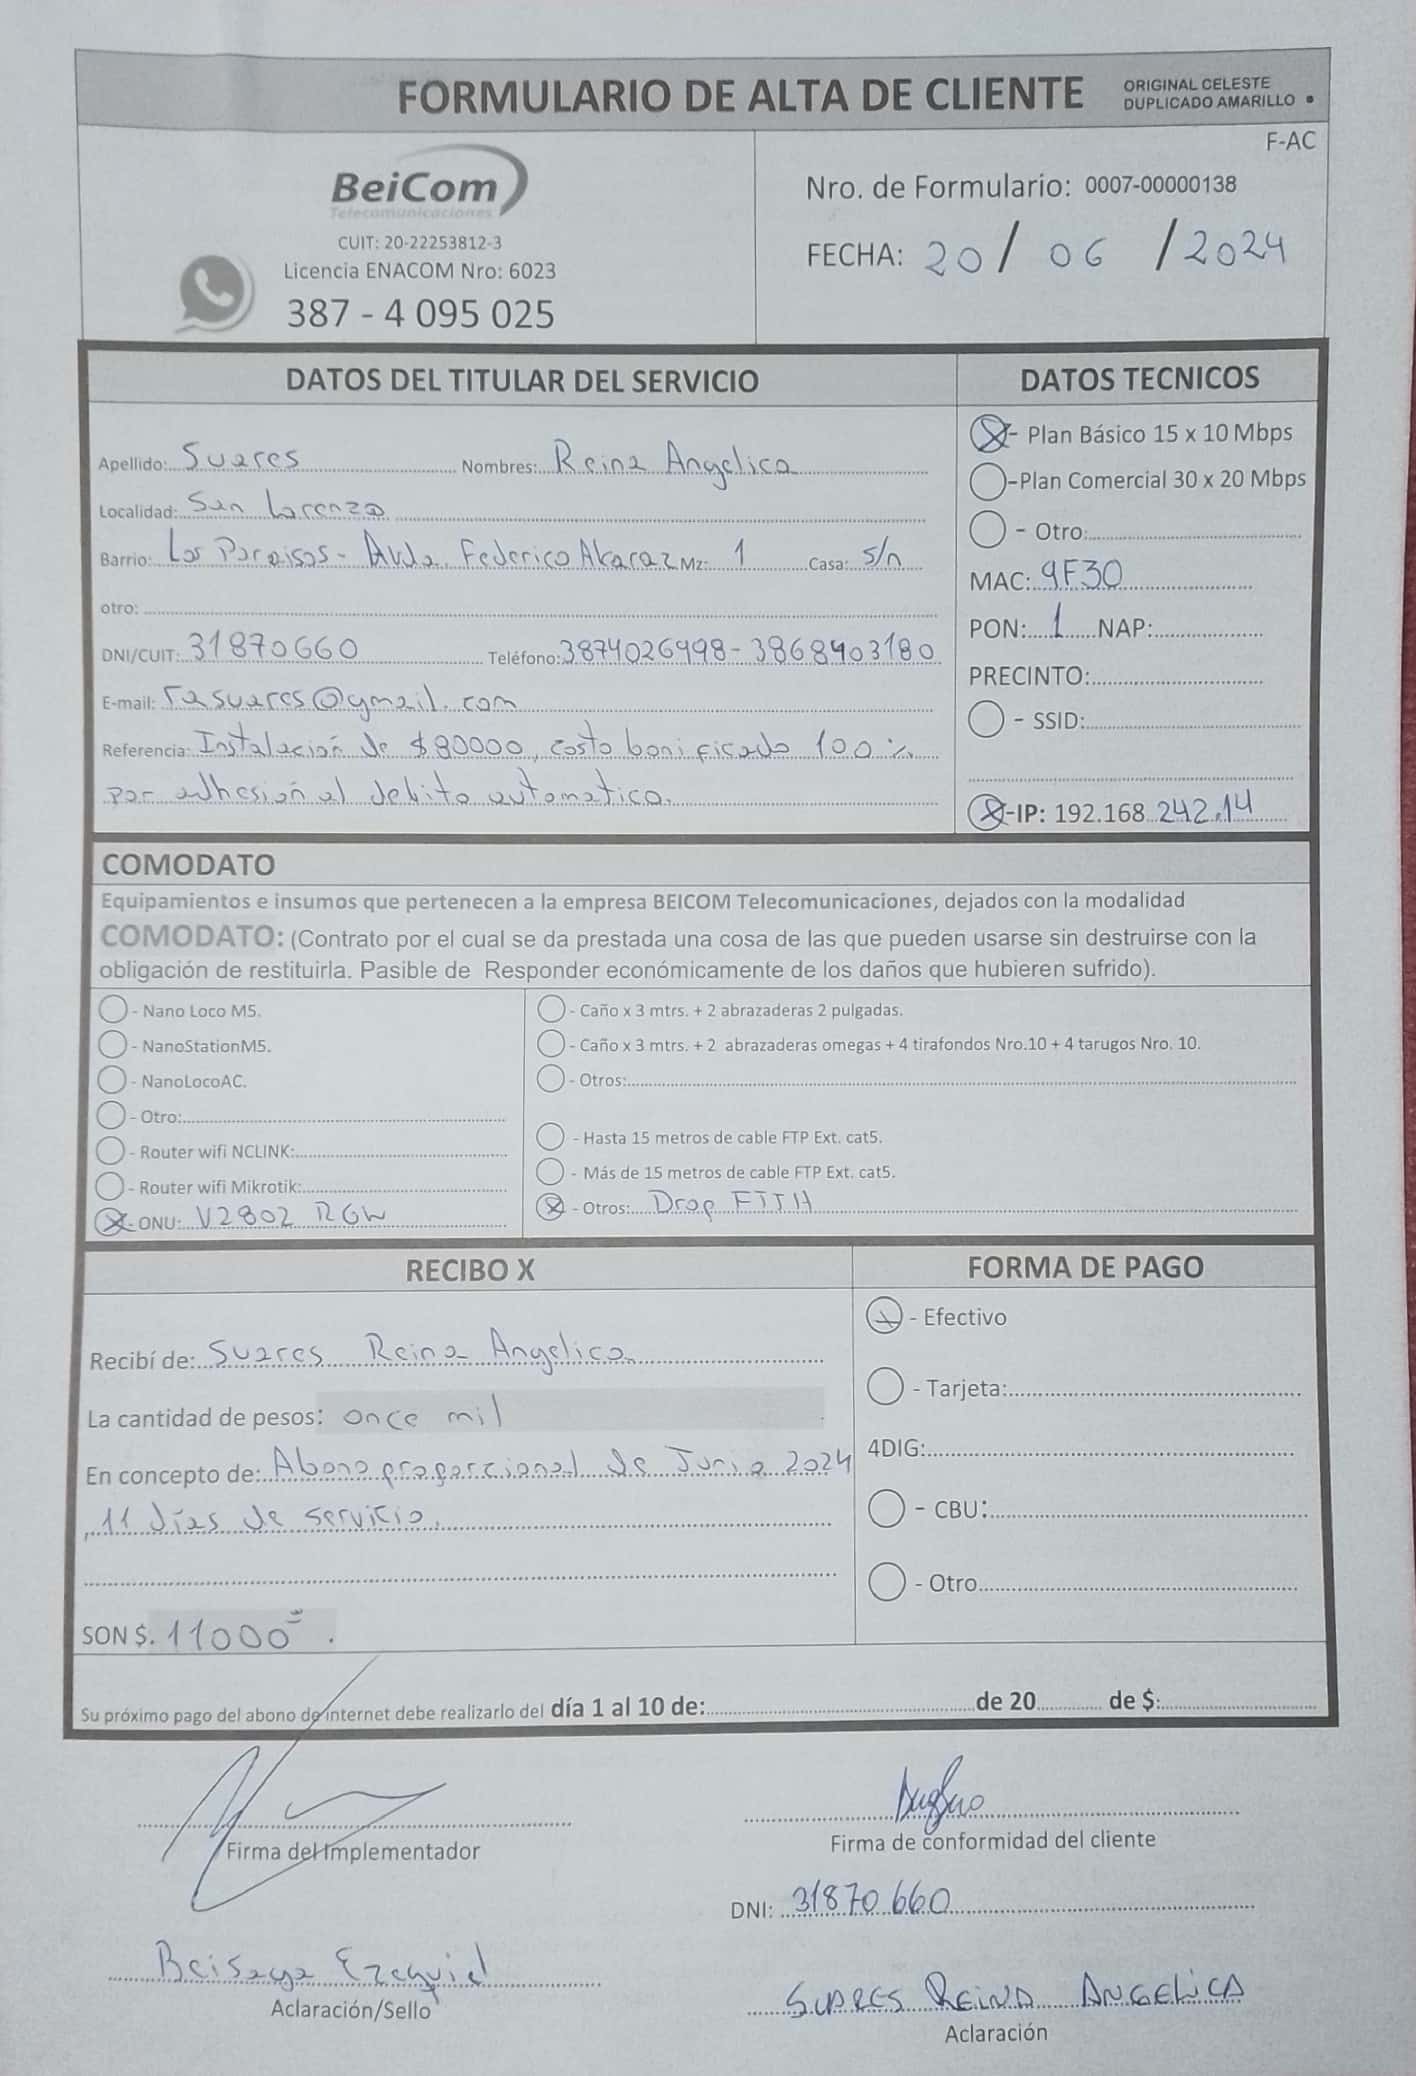 FORMULARIO DE ALTA DE CLIENTE
ORIGINAL CELESTE
DUPLICADO AMARILLO
F-AC
BeiCom
Telecomunicaciones
CUIT: 20-22253812-3
Licencia ENACOM Nro: 6023
387 - 4 095 025
Nro. de Formulario: 0007-00000138
FECHA: 20 / 06 / 2024
DATOS DEL TITULAR DEL SERVICIO
Apellido: Suares Nombres: Reina Angelica
Localidad: San Lorenzo
Barrio: Los Paraisos - Avda. Federico Alcaraz Mz: 1 Casa: s/n
otro:
DNI/CUIT: 31870660 Teléfono: 3874026998 - 3868403180
E-mail: rasuares@gmail.com
Referencia: Instalación de $80000, costo bonificado 100%
por adhesión al debito automatico.
DATOS TECNICOS
- Plan Básico 15 x 10 Mbps
-Plan Comercial 30 x 20 Mbps
- Otro:
MAC: 9F30
PON: 1 NAP:
PRECINTO:
- SSID:
-IP: 192.168 242.14
COMODATO
Equipamientos e insumos que pertenecen a la empresa BEICOM Telecomunicaciones, dejados con la modalidad
COMODATO: (Contrato por el cual se da prestada una cosa de las que pueden usarse sin destruirse con la
obligación de restituirla. Pasible de Responder económicamente de los daños que hubieren sufrido).
- Nano Loco M5.
- NanoStationM5.
- NanoLocoAC.
- Otro:
- Router wifi NCLINK:
- Router wifi Mikrotik:
- ONU: V2802 RGW
- Caño x 3 mtrs. + 2 abrazaderas 2 pulgadas.
- Caño x 3 mtrs. + 2 abrazaderas omegas + 4 tirafondos Nro.10 + 4 tarugos Nro. 10.
- Otros:
- Hasta 15 metros de cable FTP Ext. cat5.
- Más de 15 metros de cable FTP Ext. cat5.
- Otros: Drop FTTH
RECIBO X
Recibí de: Suares Reina Angelica
La cantidad de pesos: once mil
En concepto de: Abono proporcional de Junio 2024
, 11 días de servicio.
SON $. 11000 .
FORMA DE PAGO
- Efectivo
- Tarjeta:
4DIG:
- CBU:
- Otro
Su próximo pago del abono de internet debe realizarlo del día 1 al 10 de: de 20 de $:
Firma del Implementador
Firma de conformidad del cliente
DNI: 31870660
Beisaga Ezequiel
Aclaración/Sello
SUARES REINA ANGELICA
Aclaración